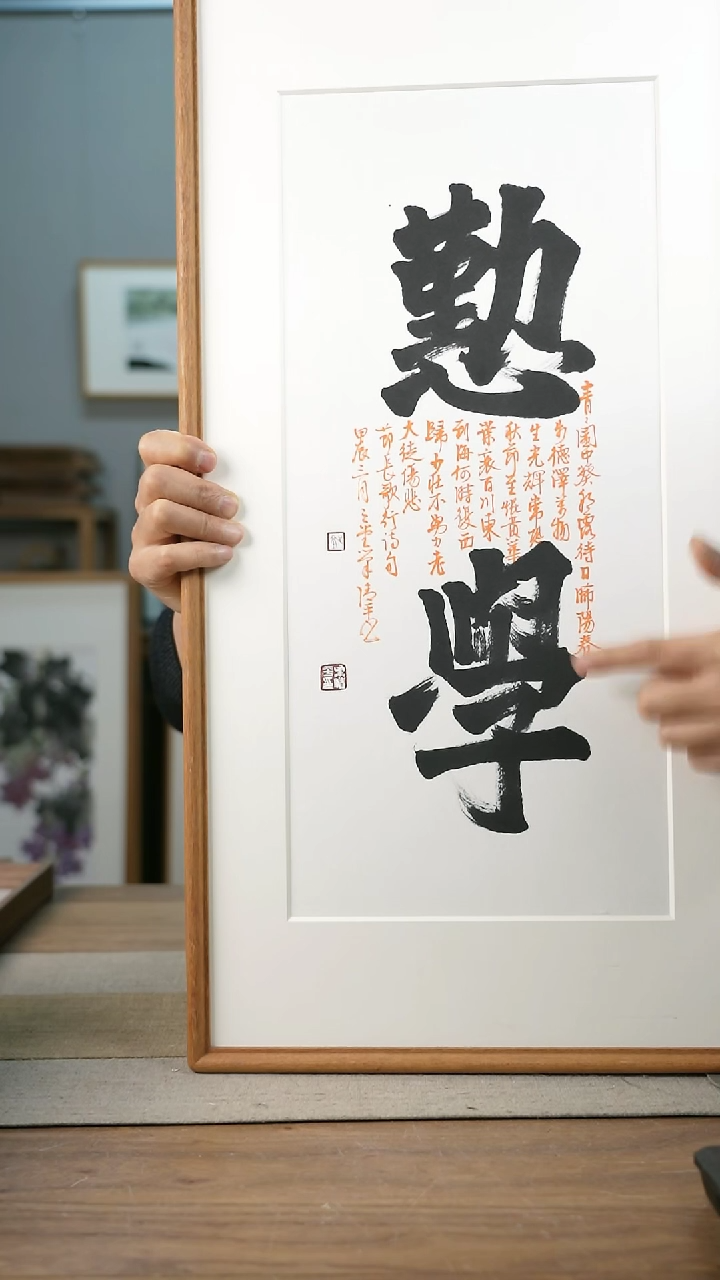 懃
學
青〻園中葵朝露待日晞陽春
布德澤萬物
生光輝常恐
秋節至焜黃華
葉衰百川東
到海何時復西
歸少壯不努力老
大徒傷悲
長歌行詩句
甲辰三月